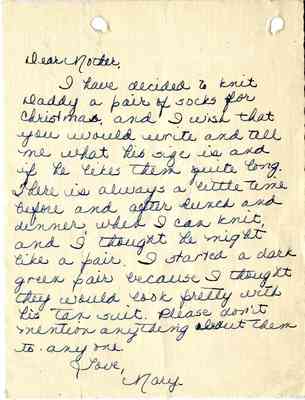 Dear Mother,
I have decided to knit
Daddy a pair of socks for
Christmas, and I wish that
you would write and tell
me what his size is and
if he likes them quite long.
There is always a little time
before and after lunch and
dinner when I can knit,
and I thought he might
like a pair. I started a dark
green pair because I thought
they would look pretty with
his tan suit. Please don't
mention anything about them
to any one.
Love,
Mary